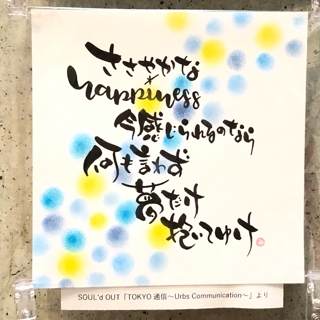 ささやかな
happiness
今感じられるのなら
何も言わず
夢だけ
抱いてゆけ
SOUL'd OUT「TOKYO 通信～Urbs Communication～」より